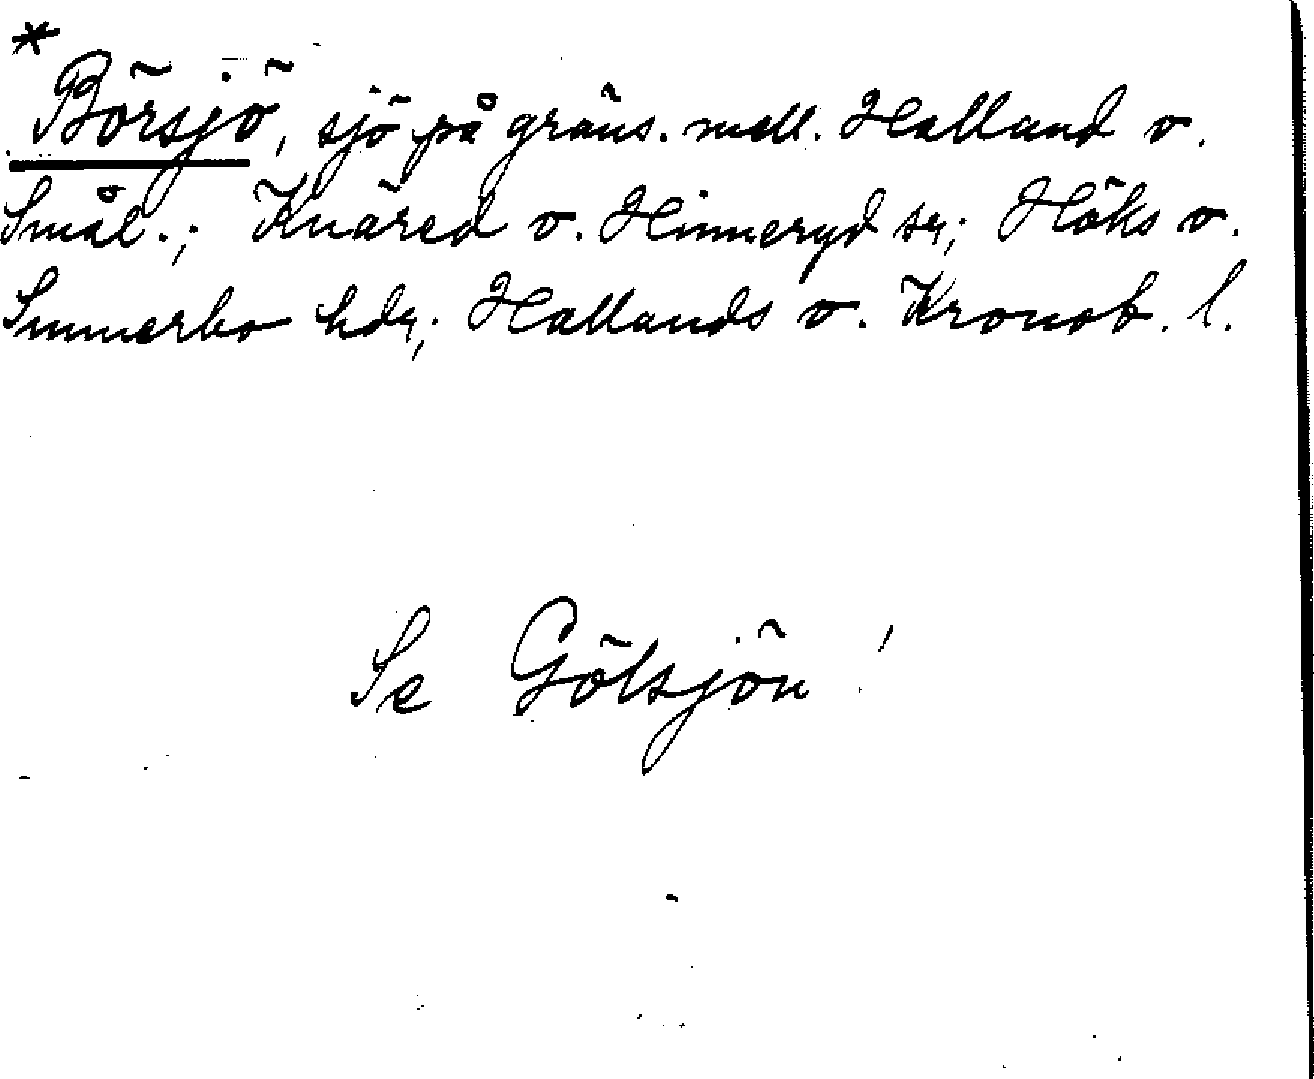 *
Börsjö, sjö på gräns. mell. Halland o.
Smål.; Knäred o. Hinneryd sr; Höks o.
Sunnerbo hdr; Hallands o. Kronob. l.
Se Gölsjön!